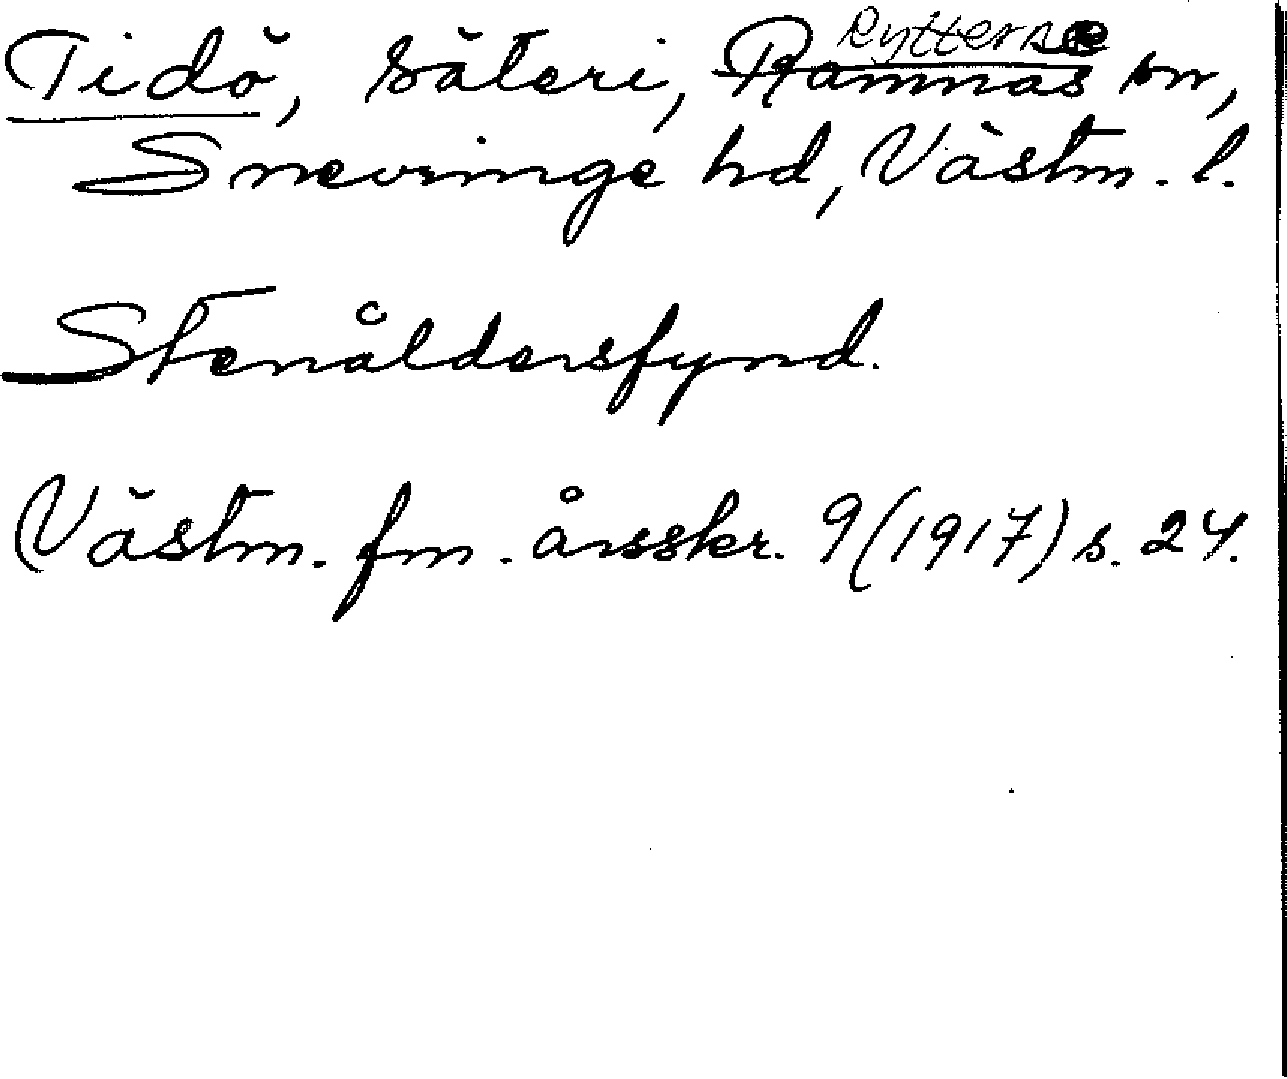 Tidö, säteri, Rytterne Ramnäs sn,
Snevringe hd, Västm. l.
Stenåldersfynd.
Västm. fm. årsskr. 9 (1917) s. 24.